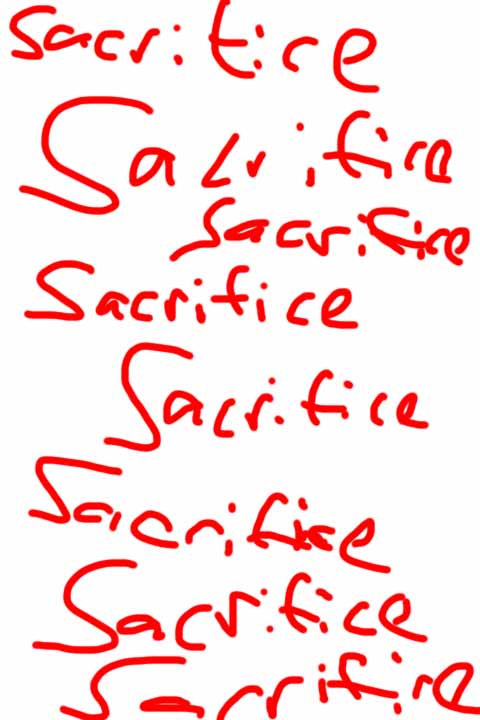 Sacrifice
Sacrifice
Sacrifice
Sacrifice
Sacrifice
Sacrifice
Sacrifice
Sacrifice